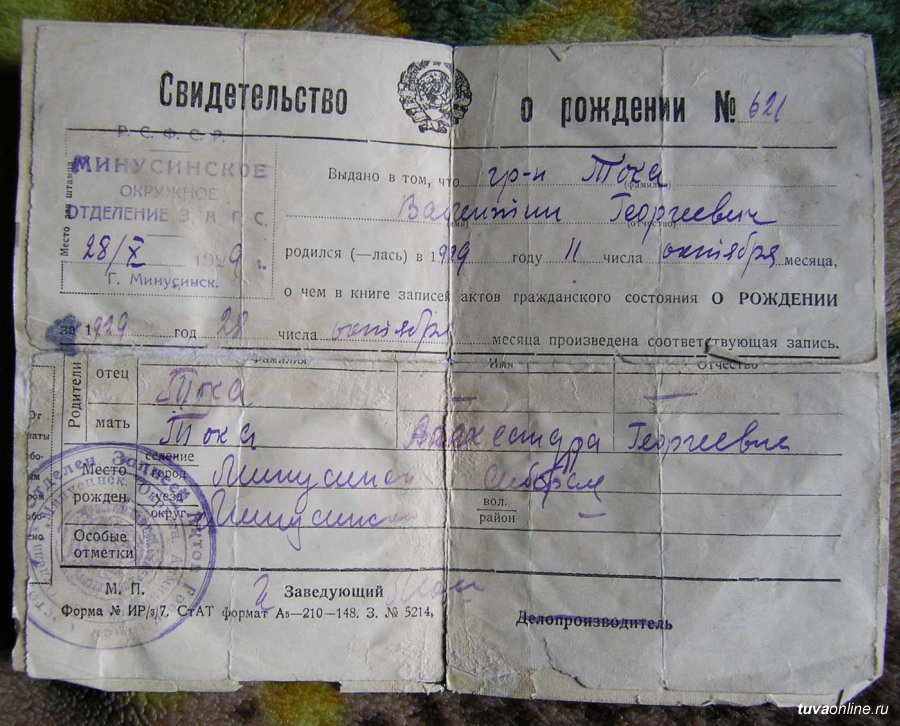 Свидетельство о рождении № 621
Р. С. Ф. С. Р.
МИНУСИНСКОЕ
ОКРУЖНОЕ
ОТДЕЛЕНИЕ З А Г С.
28/X 1929 г.
Г. Минусинск.
Место для штампа
Выдано в том, что гр-н Тока
(фамилия)
Валентин Георгиевич
(имя) (отчество)
родился (—лась) в 1929 году 11 числа октября месяца,
о чем в книге записей актов гражданского состояния О РОЖДЕНИИ
за 1929 год 28 числа октября месяца произведена соответствующая запись.
Фамилия Имя Отчество
Родители
отец Тока — —
мать Тока Александра Георгиевна
Место рожден.
селение город Минусинск
уезд округ Минусинск вол. район —
Особые отметки
М. П. Заведующий
Форма № ИР/з/7, СтАТ формат А5—210—148. З. № 5214,
Делопроизводитель
tuvaonline.ru